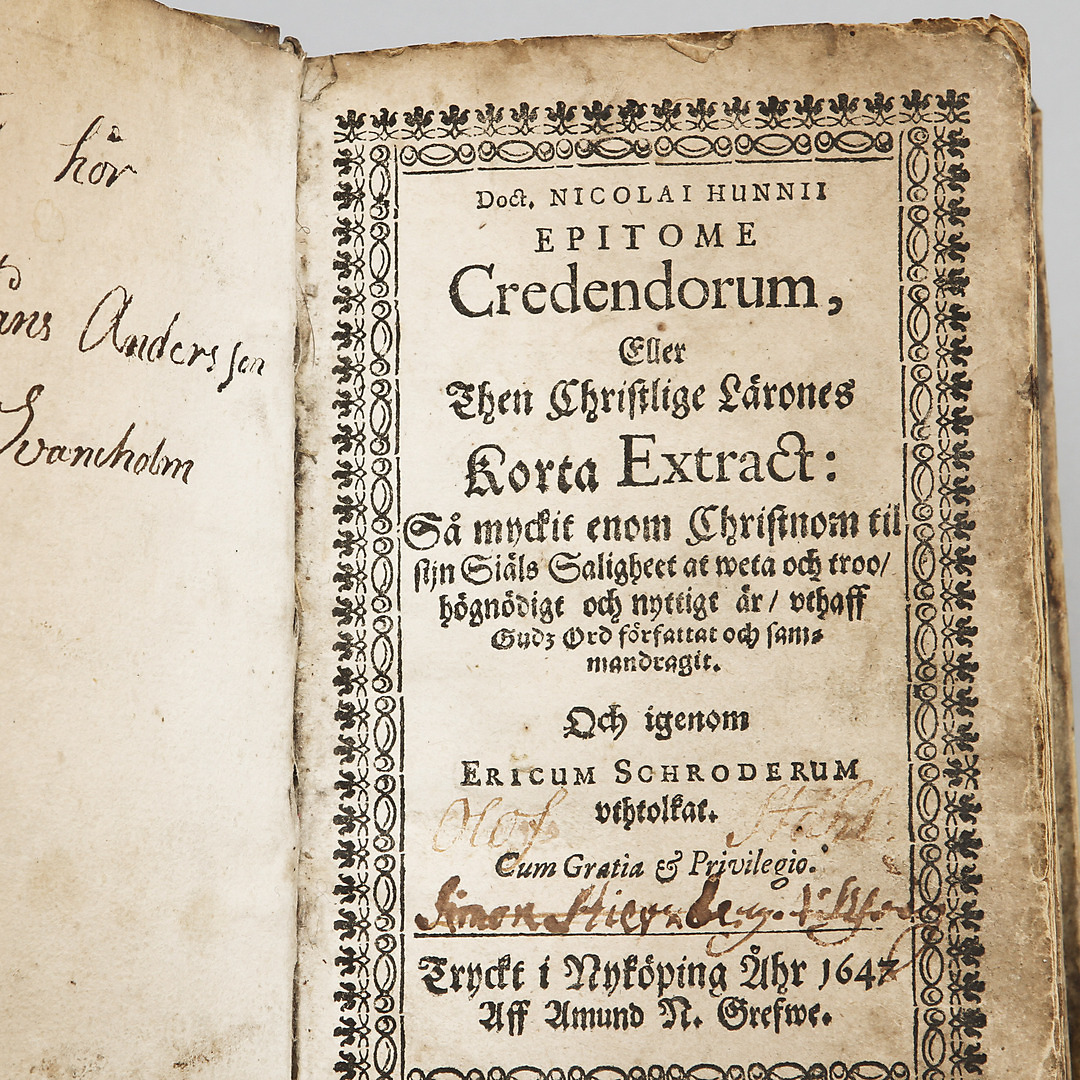 hör
Andersson
Svaneholm
Doct. NICOLAI HUNNII
EPITOME
Credendorum,
Eller
Then Christlige Lärones
Korta Extract:
Så myckit enom Christnom til
sijn Siäls Saligheet at weta och troo/
högnödigt och nyttigt är/ vthaff
Gudz Ord författat och sam-
mandragit.
Och igenom
ERICUM SCHRODERUM
vthtolkat.
Olof
Cum Gratia & Privilegio.
Simon
Tryckt i Nyköping Åhr 1647
Aff Amund N. Grefwe.